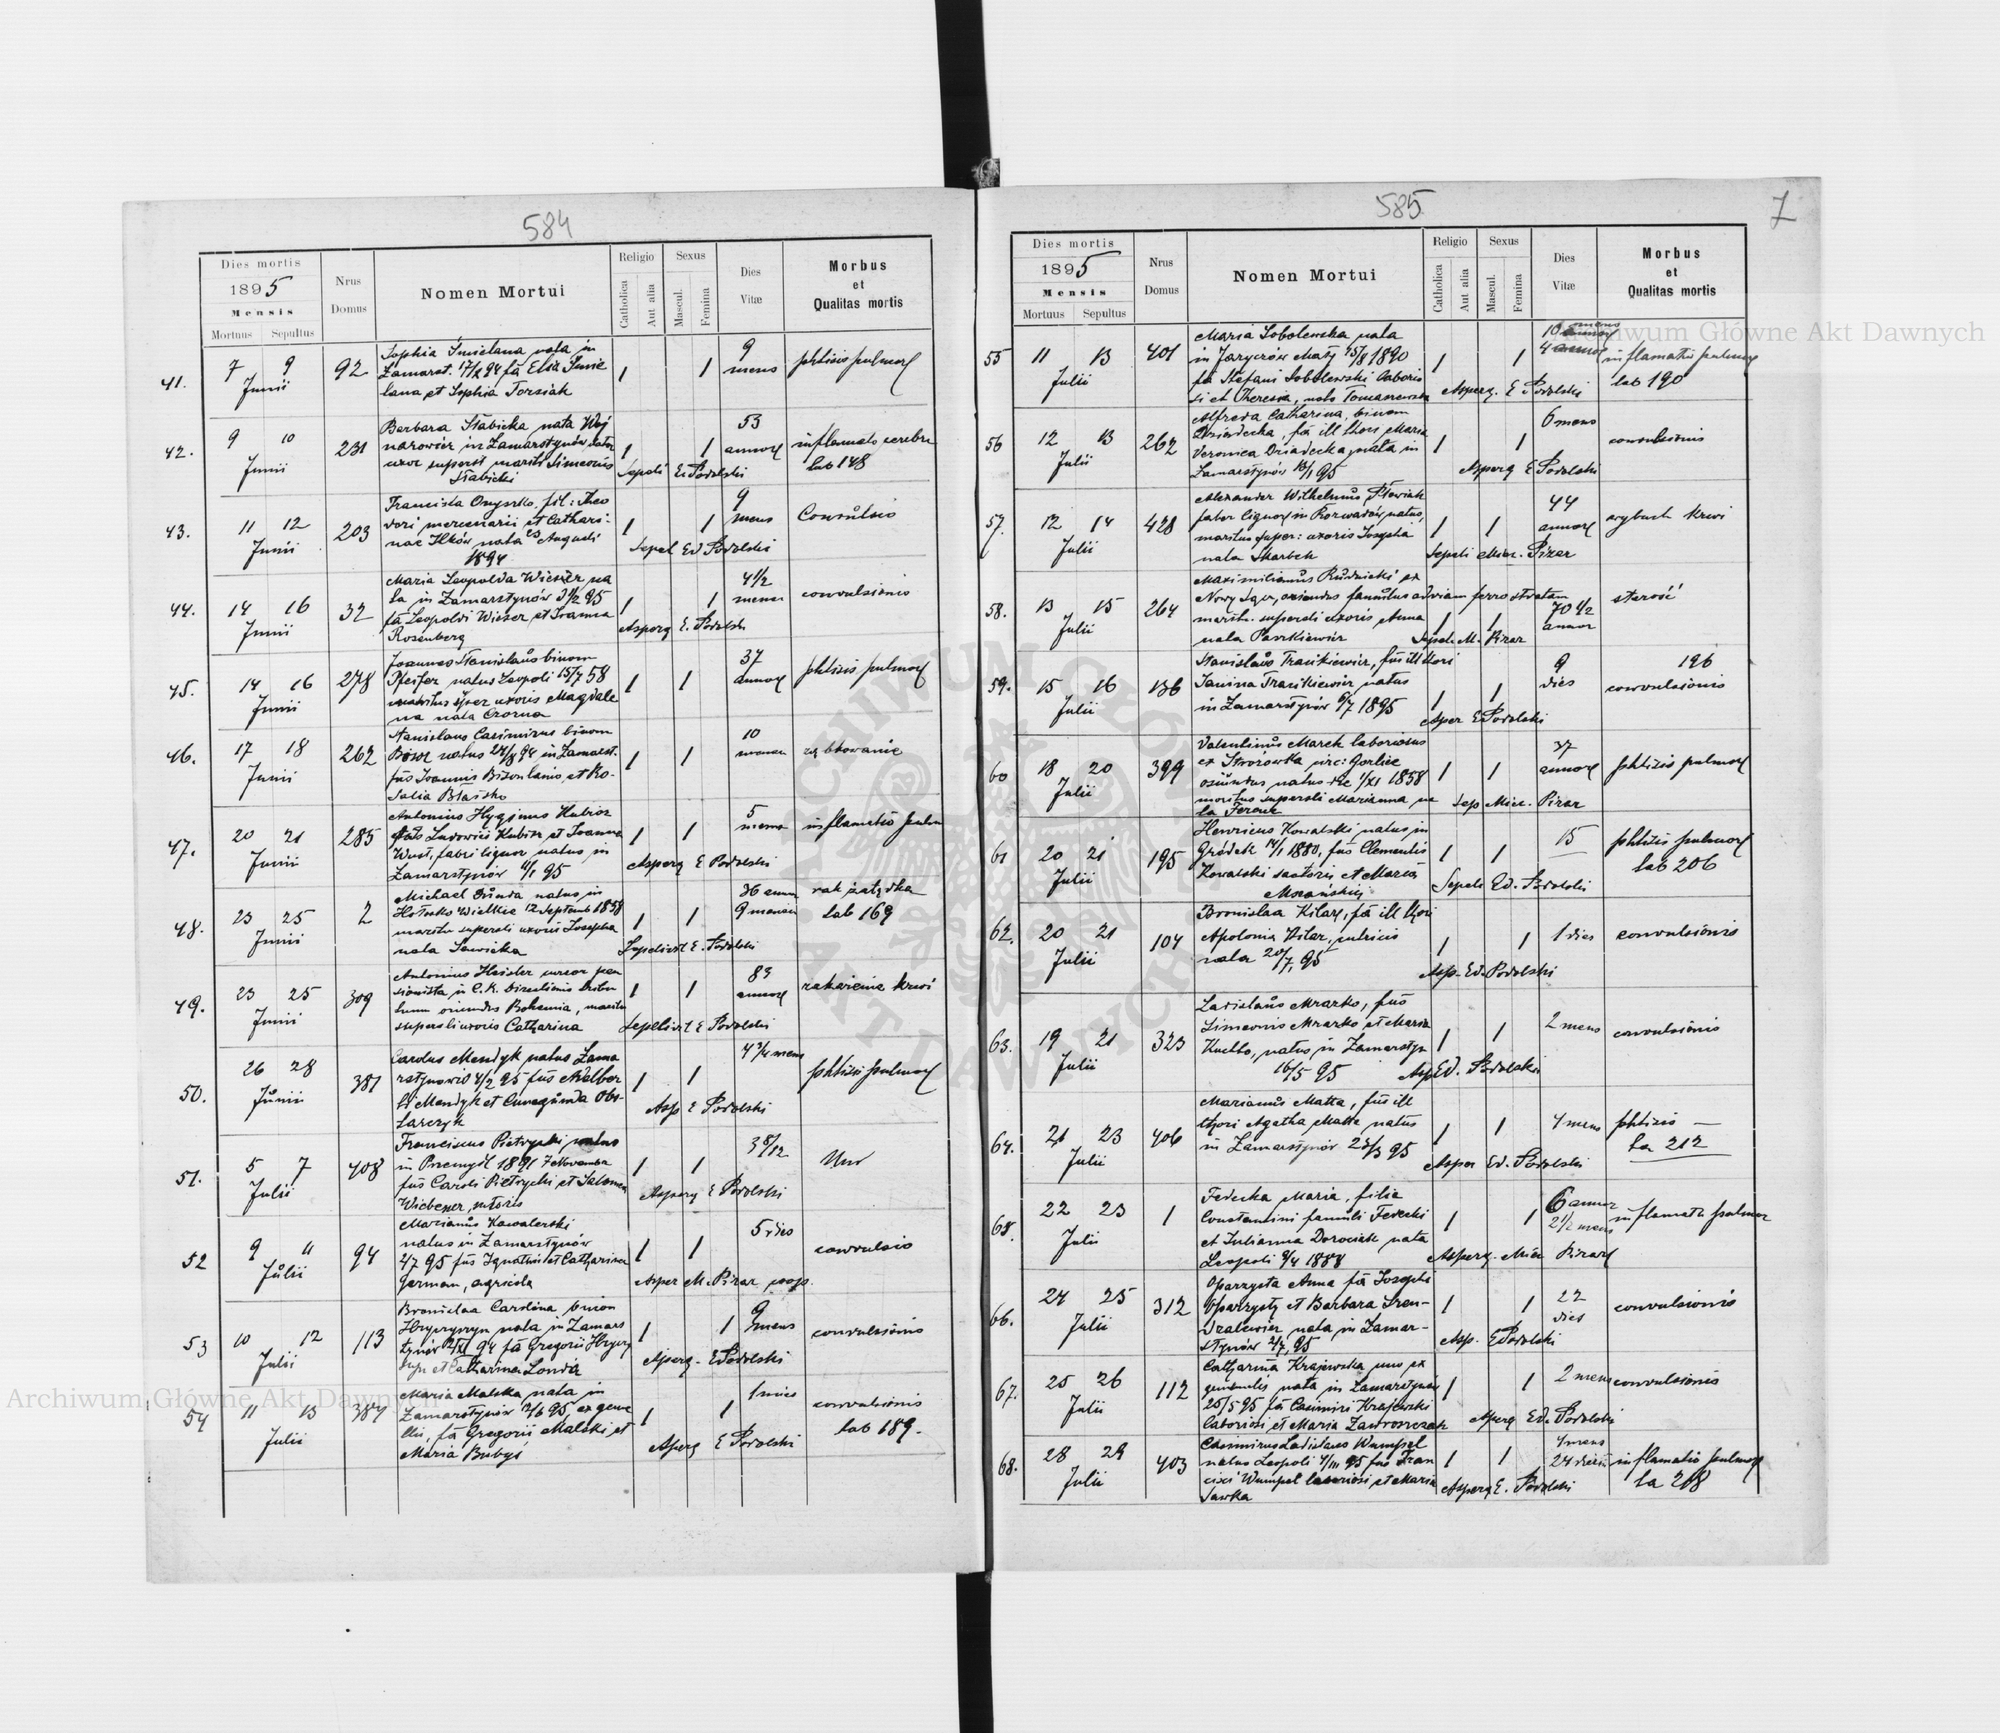 584
Dies mortis
1895
Mensis
Mortuus Sepultus
Nrus Domus
Nomen Mortui
Religio
Catholica
Aut alia
Sexus
Mascul.
Femina
Dies Vitæ
Morbus et Qualitas mortis
41. 7 9 Junii 92
Sophia Smielana nata in
Zamarst.
lana et Sophia Torsiak
1 1 9 mens phtisis pulmon
42. 9 10 Junii 231
Barbara Słabicka nata Woj
narowicz in Zamarstynów
uxor superst mariti Simeonis
Słabicki
1 1 53 annor inflamatio cerebri
lab 148
Sepeli Ed Podolski
43. 11 12 Junii 203
Francisca Onyszko, fil: Theo
dori mercenarii et Cathari-
nae Ilków nata 23 Augusti
1894
1 1 9 mens Convulsio
Sepel Ed Podolski
44. 14 16 Junii 32
Maria Leopolda Wieser na
ta in Zamarstynów
fa Leopoldi Wieser et Joanna
Rosenberg
1 1 4 1/2 mens convulsionis
Asperg E. Podolski
45. 14 16 Junii 278
Joannes Stanislaus binom
Pfeifer natus Leopoli 15/7 58
maritus super uxoris Magdale
na nata Czorna
1 1 37 annor phtisis pulmon
46. 17 18 Junii 262
Stanislaus Casimirus binom
natus in Zamarst.
fus Joannis et Ro-
salia Błaśko
1 1 10 mensu ząbkowanie
47. 20 21 Junii 285
Antonius Hyginus Kubisz
Ludovici Kubisz et Joanna
Wust, fabri lignar natus in
Zamarstynów 11/1 95
1 1 5 mens inflamatio pulm
Asperg E Podolski
48. 23 25 Junii 2
Michael natus in
Hołosko Wielkie 12 Septemb 1858
maritu supersti uxoris Josepha
nata Sawicka
1 1 36 annor 9 mensis rak żołądka
Lab 169
Sepelivit E. Podolski
49. 23 25 Junii 309
Antonius Heisler cursor pen
sionista in C.K.
oriundus Bohemia, maritu
supersti uxoris Catharina
1 1 83 annor zakażenie krwi
Sepelivit E Podolski
50. 26 28 Junii 381
Carolus Mendyk natus Zama
rstynowie 4/2 95 fus Adalber
ti Mendyk et Cunegunda
larczyk
1 1 4 3/4 mens phtisis pulmon
Asp E Podolski
51. 5 7 Julii 408
Franciscus Pietrycki natus
in Przemyśl 1891 7 Novembr
fus Caroli Pietrycki et Salomea
1 1 3 8/12
Asperg E Podolski
52 9 11 Julii 94
Marianus Kowalerski
natus in Zamarstynów
2/7 95 fus Ignatius et Catharina
German, agricola
1 1 5 dies convulsio
Asper M. Pirar coop.
53 10 12 Julii 113
Bronislaa Carolina binom
Hryczyszyn nata in Zamars
tynów 94 fa Gregorii Hrycy
szyn et Catharina Londa
1 1 9 mens convulsionis
Asperg. E Podolski
54 11 13 Julii 387
Maria Malska nata in
Zamarstynów 12/6 95 ex geme
llis, fa Gregorii Malski et
Maria Bubyś
1 1 1 mens convulsionis
lab 189.
Asperg E Podolski
585
7
Dies mortis
1895
Mensis
Mortuus Sepultus
Nrus Domus
Nomen Mortui
Religio
Catholica
Aut alia
Sexus
Mascul.
Femina
Dies Vitæ
Morbus et Qualitas mortis
55 11 13 Julii 401
Maria Sobolewska nata
in Jaryczów Mały 15/8 1890
fa Stefani Sobolewski laborio
si et Theresia, nata Tomaszewska
1 1 10 mens 4 annor inflamatio pulmon
lab 190
Asperg. E Podolski
56 12 13 Julii 262
Alfreda Catharina, binom
Dziadecka, fa ill thori Maria
Veronica Dziadecka, nata in
Zamarstynów 13/1 95
1 1 6 mens convulsionis
Asperg E Podolski
57. 12 14 Julii 428
Alexander Wilhelmus
faber lignar in Rozwadów natus,
maritus super: uxoris Josepha
nata Skarbek
1 1 44 annor wybuch krwi
Sepeli Mier. Pirar
58. 13 15 Julii 264
Maximilianus Rudnicki ex
Nowy Sącz, oriundus famulus ad viam ferro stratam
marit. supersti uxoris Anna
nata Paszkiewicz
1 1 70 1/2 annor starość
Sepel. M. Pirar
59. 15 16 Julii 136
Stanislaus Traczkiewicz, fus ill thori
Janina Traczkiewicz natus
in Zamarstynów 6/7 1895
1 1 9 dies 196
convulsionis
Asper E Podolski
60 18 20 Julii 399
Valentinus Marek laboriosus
ex Stróżówka circ: Gorlice
oriundus natus die 1/XI 1858
maritus supersti Marianna na
ta Ferenc
1 1 37 annor phtisis pulmon
Sep Mier. Pirar
61 20 21 Julii 195
Henricus Kowalski natus in
Gródek 14/1 1880, fus Clementis
Kowalski sartoris et Maria
1 1 15 phtisis pulmon
lab 206
Sepeli Ed. Podolski
62. 20 21 Julii 104
Bronislaa Kilar, fa ill thori
Apolonia Kilar, nutricis
nata 20/7, 95
1 1 1 dies convulsionis
Asp. Ed. Podolski
63. 19 21 Julii 323
Ladislaus Mrazko, fus
Simeonis Mrazko et Maria
natus, in Zamarstyn
16/5 95
1 1 2 mens convulsionis
Asp Ed. Podolski
64. 21 23 Julii 406
Marianus Matta, fus ill
thori Agatha Matta natus
in Zamarstynów 23/3 95
1 1 4 mens phtisis —
la 212
Asper Ed. Podolski
65. 22 23 Julii 1
Federka Maria, filia
Constantini famuli Federki
et Julianna Dorociak nata
Leopoli 9/4 1888
1 1 6 annor 2 1/2 mens inflamatio pulmon
Asperg. Mier Pirar
66. 24 25 Julii 312
Oparzysta Anna fa Josephi
Oparzysty et Barbara Szen-
dzalewicz nata in Zamar-
stynów 2/7, 95
1 1 22 dies convulsionis
Asp. E Podolski
67. 25 26 Julii 112
Catharina Krajewska una ex
gemellis nata in Zamarstynów
25/5 95 fa Casimiri Krajewski
laboriosi et Maria
1 1 2 mens convulsionis
Asperg Ed. Podolski
68. 28 29 Julii 403
Casimirus Ladislaus Wumpel
natus Leopoli 4/III 95 fus Fran
cisci Wumpel laboriosi et Maria
Sawka
1 1 4 mens 24 dies inflamatio pulmon
la 218
Asperg E. Podolski
Archiwum Główne Akt Dawnych
Archiwum Główne Akt Dawnych
ARCHIWUM GŁÓWNE AKT DAWNYCH